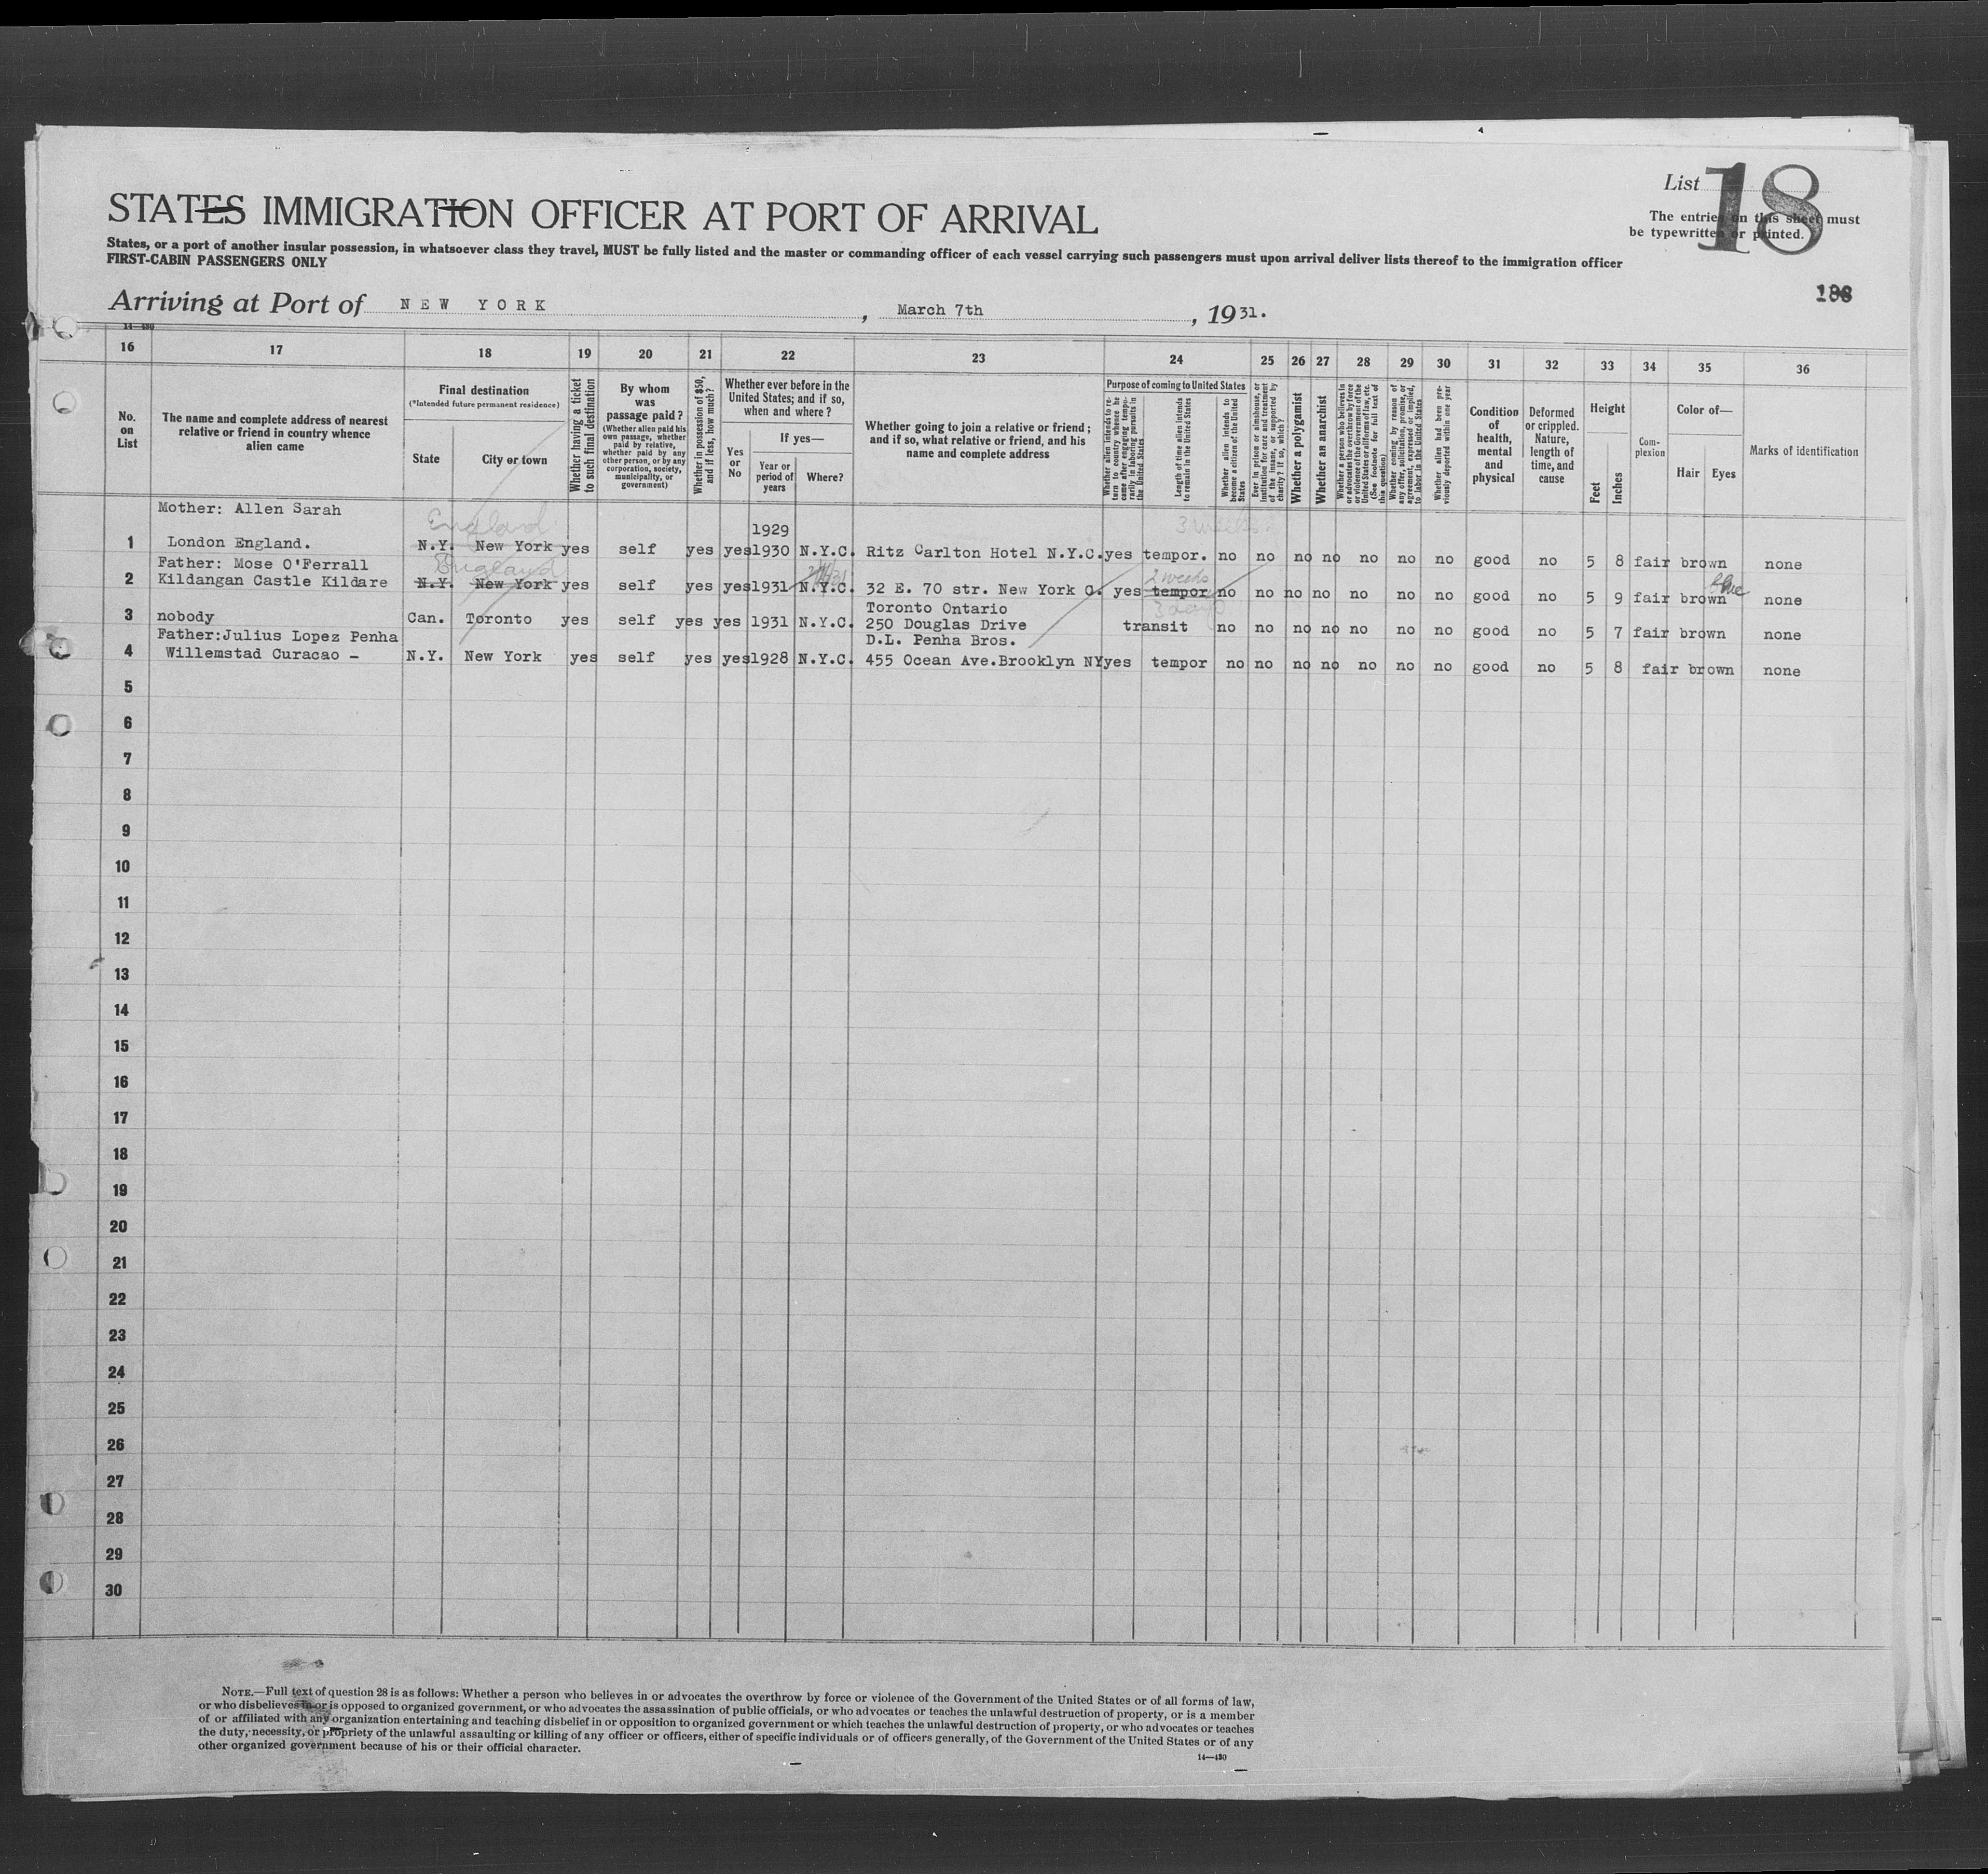 List 18
STATES IMMIGRATION OFFICER AT PORT OF ARRIVAL
The entries on this sheet must
be typewritten or printed.
States, or a port of another insular possession, in whatsoever class they travel, MUST be fully listed and the master or commanding officer of each vessel carrying such passengers must upon arrival deliver lists thereof to the immigration officer
FIRST-CABIN PASSENGERS ONLY
Arriving at Port of NEW YORK, March 7th, 1931.
14—430
16 17 18 19 20 21 22 23 24 25 26 27 28 29 30 31 32 33 34 35 36
No. on List
The name and complete address of nearest relative or friend in country whence alien came
Final destination
(*Intended future permanent residence)
State
City or town
Whether having a ticket to such final destination
By whom was passage paid?
(Whether alien paid his own passage, whether paid by relative, whether paid by any other person, or by any corporation, society, municipality, or government)
Whether in possession of $50, and if less, how much?
Whether ever before in the United States; and if so, when and where?
Yes or No
If yes—
Year or period of years
Where?
Whether going to join a relative or friend; and if so, what relative or friend, and his name and complete address
Purpose of coming to United States
Whether alien intends to return to country whence he came after engaging temporarily in laboring pursuits in the United States
Length of time alien intends to remain in the United States
Whether alien intends to become a citizen of the United States
Ever in prison or almshouse, or institution for care and treatment of the insane, or supported by charity? If so, which?
Whether a polygamist
Whether an anarchist
Whether a person who believes in or advocates the overthrow by force or violence of the Government of the United States or all forms of law, etc. (See footnote for full text of this question)
Whether coming by reason of any offer, solicitation, promise, or agreement, expressed or implied, to labor in the United States
Whether alien had been previously deported within one year
Condition of health, mental and physical
Deformed or crippled. Nature, length of time, and cause
Height
Feet
Inches
Complexion
Color of—
Hair
Eyes
Marks of identification
Mother: Allen Sarah
England 1929 3 weeks
1 London England. N.Y. New York yes self yes yes 1930 N.Y.C. Ritz Carlton Hotel N.Y.C. yes tempor. no no no no no no no good no 5 8 fair brown none
Father: Mose O'Ferrall
England 2 weeks
2 Kildangan Castle Kildare N.Y. New York yes self yes yes 1931 N.Y.C. 32 E. 70 str. New York C. yes tempor no no no no no no no good no 5 9 fair brown blue none
Toronto Ontario 3 days
3 nobody Can. Toronto yes self yes yes 1931 N.Y.C. 250 Douglas Drive transit no no no no no no no good no 5 7 fair brown none
Father:Julius Lopez Penha D.L. Penha Bros.
4 Willemstad Curacao – N.Y. New York yes self yes yes 1928 N.Y.C. 455 Ocean Ave.Brooklyn NY yes tempor no no no no no no no good no 5 8 fair brown none
5
6
7
8
9
10
11
12
13
14
15
16
17
18
19
20
21
22
23
24
25
26
27
28
29
30
NOTE.—Full text of question 28 is as follows: Whether a person who believes in or advocates the overthrow by force or violence of the Government of the United States or of all forms of law,
or who disbelieves in or is opposed to organized government, or who advocates the assassination of public officials, or who advocates or teaches the unlawful destruction of property, or is a member
of or affiliated with any organization entertaining and teaching disbelief in or opposition to organized government or which teaches the unlawful destruction of property, or who advocates or teaches
the duty, necessity, or propriety of the unlawful assaulting or killing of any officer or officers, either of specific individuals or of officers generally, of the Government of the United States or of any
other organized government because of his or their official character.
14—430